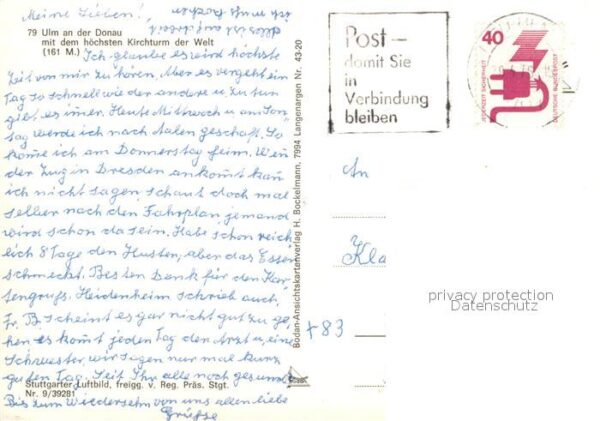 Meine Lieben!
79 Ulm an der Donau
mit dem höchsten Kirchturm der Welt
(161 M.)
Ich glaube es wird höchste
Zeit von mir zu hören, Aber es vergeht ein
Tag so schnell wie der andere u. zu tun
gibt es imer. Heute Mittwoch u. am Son
tag werde ich nach Aalen geschafft. So
kome ich am Donnerstag heim. Wen
der Zug in Dresden ankomt kan
ich nicht sagen, schaut doch mal
selber nach den Fahrplan, jemand
wird schon da sein. Habe schon reich
lich 8 Tage den Husten, aber das Essen
schmeckt. Besten Dank für den Kar
tengruß. Heidenheim schrieb auch,
Fr. B scheint es gar nicht gut zu ge
hen es komt jeden Tag der Arzt u. eine
Schwester, wir sagen nur mal kurz
guten Tag. Seit Ihr alle noch gesund
Stuttgarter Luftbild, freigg. v. Reg. Präs. Stgt.
Nr. 9/39281
Bis zum Wiedersehn von uns allen liebe
Grüsse
Bodan-Ansichtskartenverlag H. Bockelmann, 7994 Langenargen Nr. 43-20
Post –
damit Sie
in
Verbindung
bleiben
40
JEDERZEIT SICHERHEIT
DEUTSCHE BUNDESPOST
An
Kla
+83
privacy protection
Datenschutz